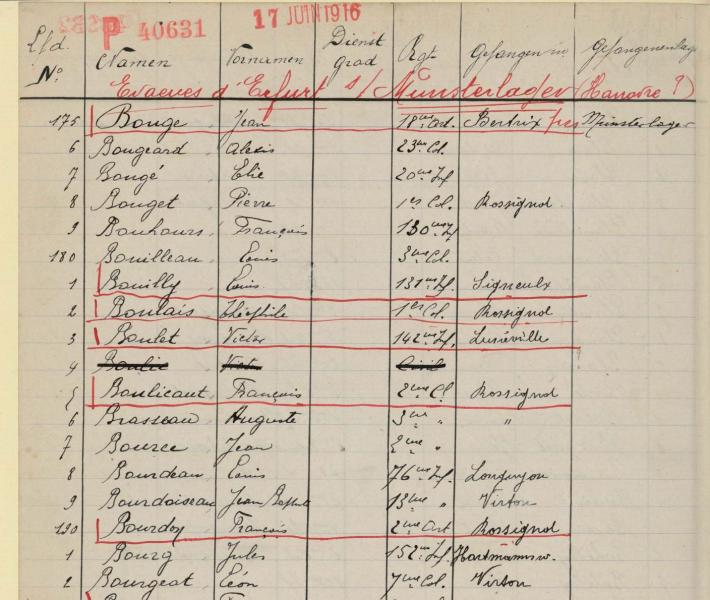 P 40631 17 JUIN 1916
Lfd. No Namen Vornamen Dienst grad Rgt. Gefangen in Gefangenenlager
Evacués d'Erfurt s/ Munsterlager (Hanovre ?)
175 Bouge Jean 18me Art. Bertrix près Münsterlager
6 Bougeard Alexis 23me Col.
7 Bougé Elie 20me Inf
8 Bouget Pierre 1er Col. Rossignol
9 Bouhours François 130me If
180 Bouilleau Louis 3me Col.
1 Bouilly Louis 131me If. Signeulx
2 Boulais Théophile 1er Col. Rossignol
3 Boulet Victor 142me If, Lunéville
4 Civil
5 Boulicaut François 2me Cl Rossignol
6 Brasseau Auguste 3me " "
7 Bource Jean 2me "
8 Bourdeau Louis 76me If. Longuyon
9 Bourdoiseau Jean Baptiste 13me " Virton
190 Bourdon François 2me Art Rossignol
1 Bourg Jules 152me If Hartmannsw.
2 Bourgeat Léon 7me Col. Virton